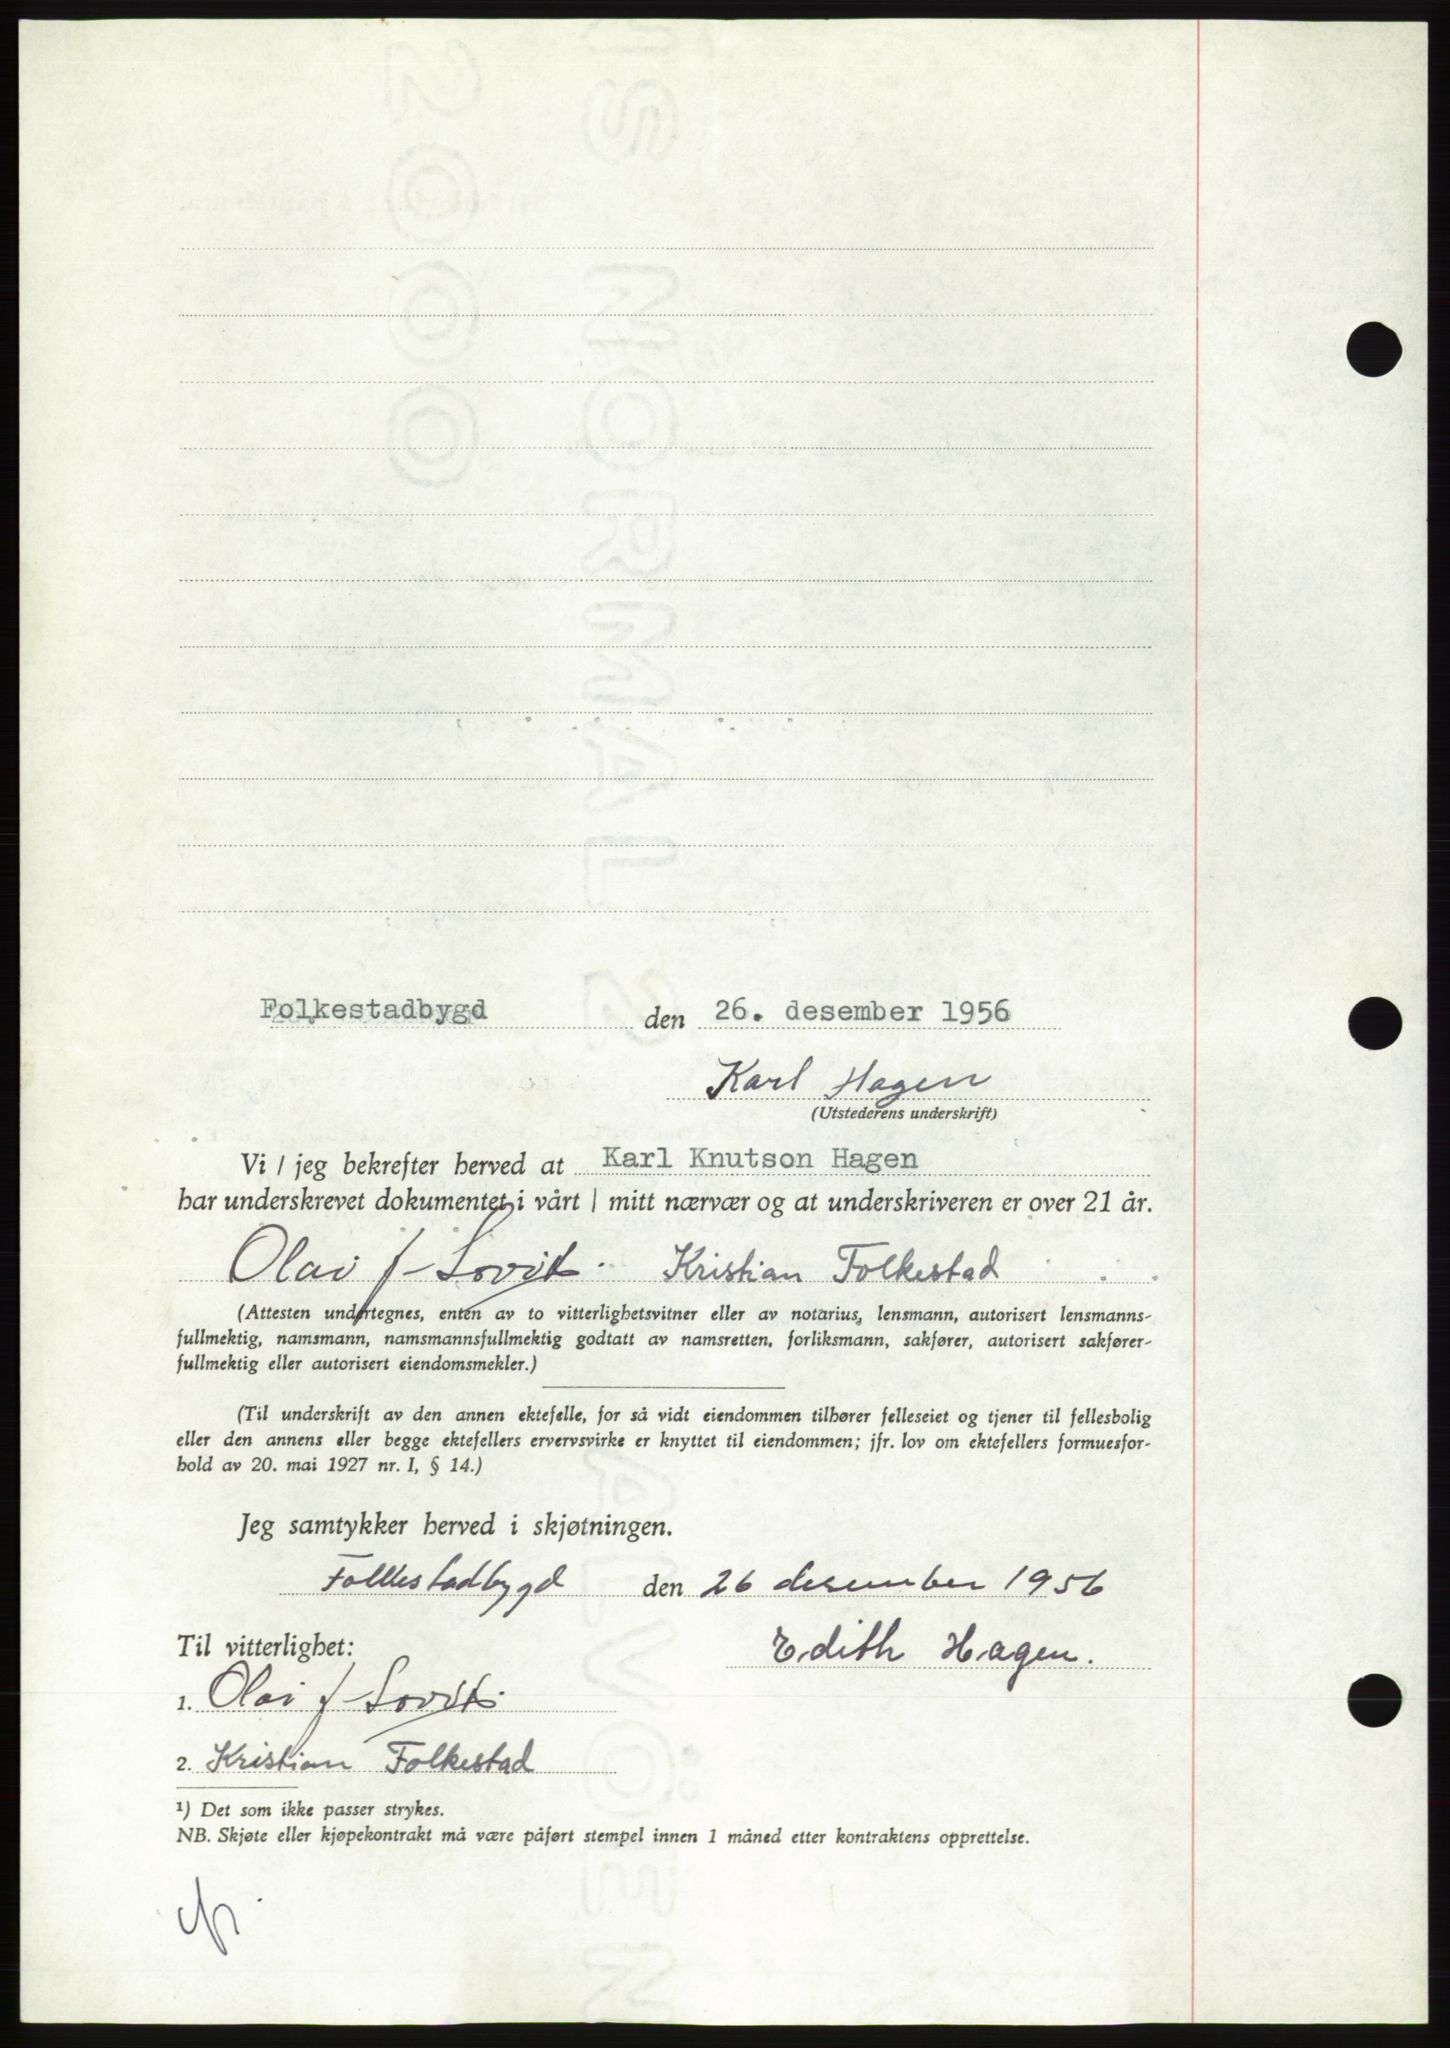 Folkestadbygd den 26. desember 1956
Karl Hagen
(Utstederens underskrift)
Vi / jeg bekrefter herved at Karl Knutson Hagen
har underskrevet dokumentet i vårt / mitt nærvær og at underskriveren er over 21 år.
Olai J. Lovik. Kristian Folkestad
(Attesten undertegnes, enten av to vitterlighetsvitner eller av notarius, lensmann, autorisert lensmanns-
fullmektig, namsmann, namsmannsfullmektig godtatt av namsretten, forliksmann, sakfører, autorisert sakfører-
fullmektig eller autorisert eiendomsmekler.)
(Til underskrift av den annen ektefelle, for så vidt eiendommen tilhører felleseiet og tjener til fellesbolig
eller den annens eller begge ektefellers ervervsvirke er knyttet til eiendommen; jfr. lov om ektefellers formuesfor-
hold av 20. mai 1927 nr. I, § 14.)
Jeg samtykker herved i skjøtningen.
Folkestadbygd den 26 desember 1956
Til vitterlighet: Edith Hagen.
1. Olai J. Lovik.
2. Kristian Folkestad
¹) Det som ikke passer strykes.
NB. Skjøte eller kjøpekontrakt må være påført stempel innen 1 måned etter kontraktens opprettelse.